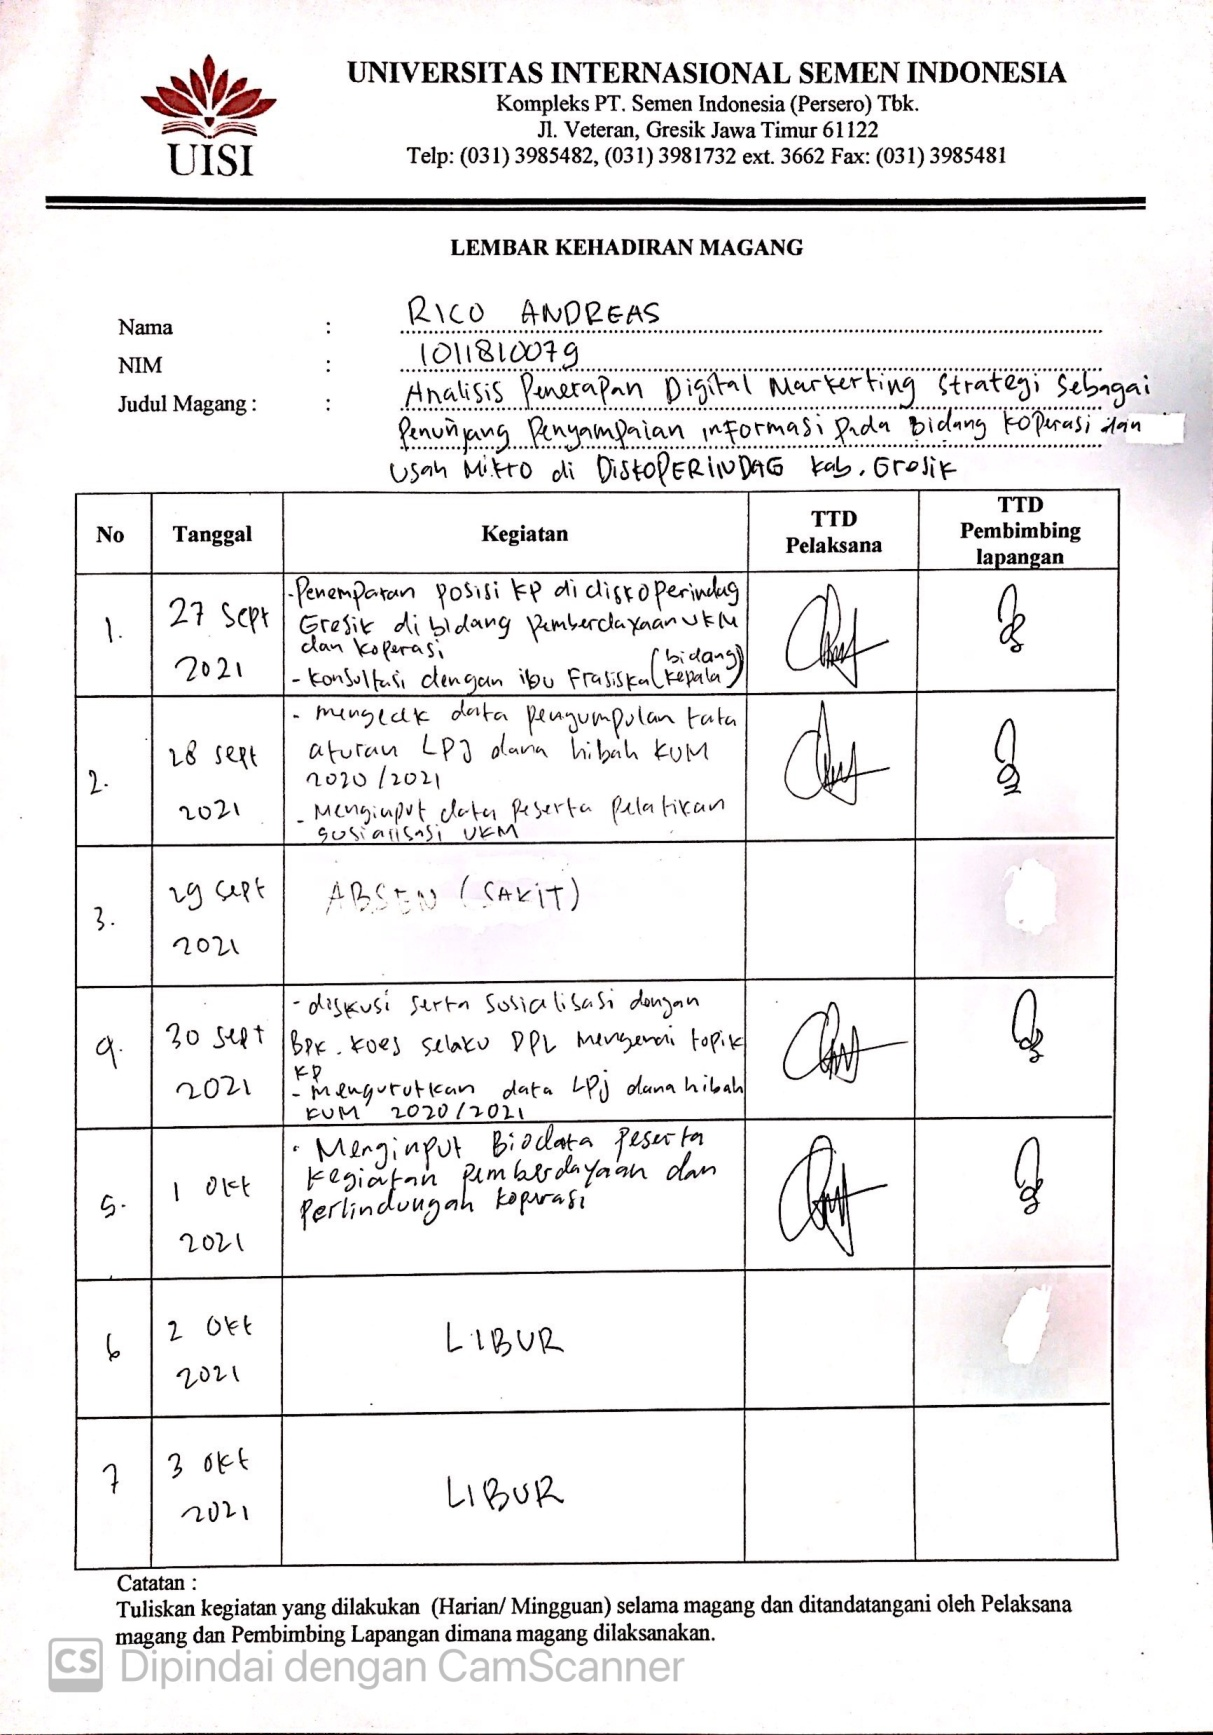 UISI
UNIVERSITAS INTERNASIONAL SEMEN INDONESIA
Kompleks PT. Semen Indonesia (Persero) Tbk.
Jl. Veteran, Gresik Jawa Timur 61122
Telp: (031) 3985482, (031) 3981732 ext. 3662 Fax: (031) 3985481
LEMBAR KEHADIRAN MAGANG
Nama : RICO ANDREAS
NIM : 1011810079
Judul Magang : : Analisis Penerapan Digital Markerting Strategi Sebagai
Penunjang Penyampaian informasi pada Bidang Koperasi dan
Usah Mikro di DisKOPERINDAG Kab. Gresik
No Tanggal Kegiatan TTD Pelaksana TTD Pembimbing lapangan
1. 27 Sept 2021
- Penempatan posisi KP di diskoperindag
Gresik di bidang pemberdayaan UKM
dan koperasi
- konsultasi dengan ibu Frasiska (kepala bidang)
2. 28 sept 2021
- mengecek data pengumpulan tata
aturan LPJ dana hibah KUM
2020/2021
- Menginput data peserta pelatihan
sosialisasi UKM
3. 29 sept 2021
ABSEN (SAKIT)
4. 30 sept 2021
- diskusi serta sosialisasi dengan
Bpk. Koes selaku DPL mengenai topik
KP
- mengurutkan data LPj dana hibah
KUM 2020/2021
5. 1 Okt 2021
- Menginput Biodata peserta
kegiatan pemberdayaan dan
Perlindungan koperasi
6 2 Okt 2021
LIBUR
7 3 Okt 2021
LIBUR
Catatan :
Tuliskan kegiatan yang dilakukan (Harian/ Mingguan) selama magang dan ditandatangani oleh Pelaksana
magang dan Pembimbing Lapangan dimana magang dilaksanakan.
CS Dipindai dengan CamScanner